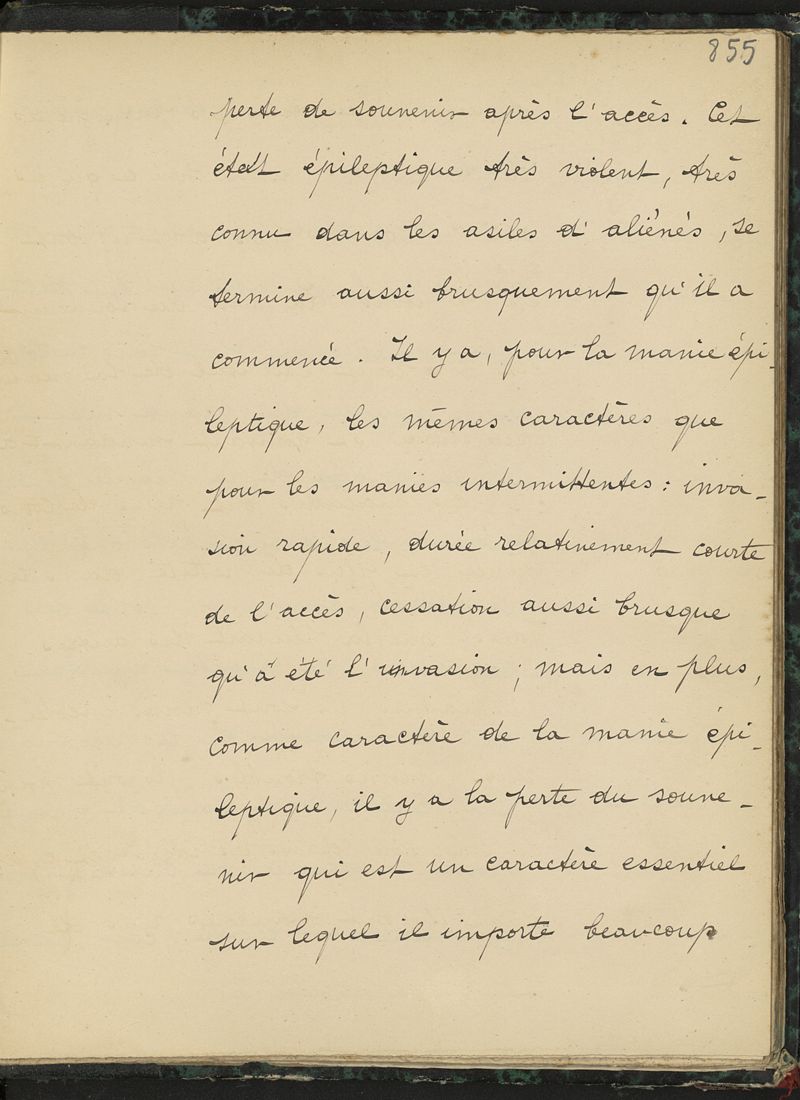 855
perte de souvenir après l'accès. Cet
état épileptique très violent, très
connu dans les asiles d'aliénés, se
termine aussi brusquement qu'il a
commencé. Il y a, pour la manie épi-
leptique, les mêmes caractères que
pour les manies intermittentes : inva-
sion rapide, durée relativement courte
de l'accès, cessation aussi brusque
qu'a été l'invasion ; mais en plus,
comme caractère de la manie épi-
leptique, il y a la perte du souve-
nir qui est un caractère essentiel
sur lequel il importe beaucoup